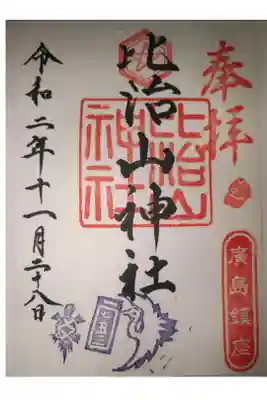 奉拝
廣島鎮座
比治山神社
比治山
神社
令和二年十一月二十八日